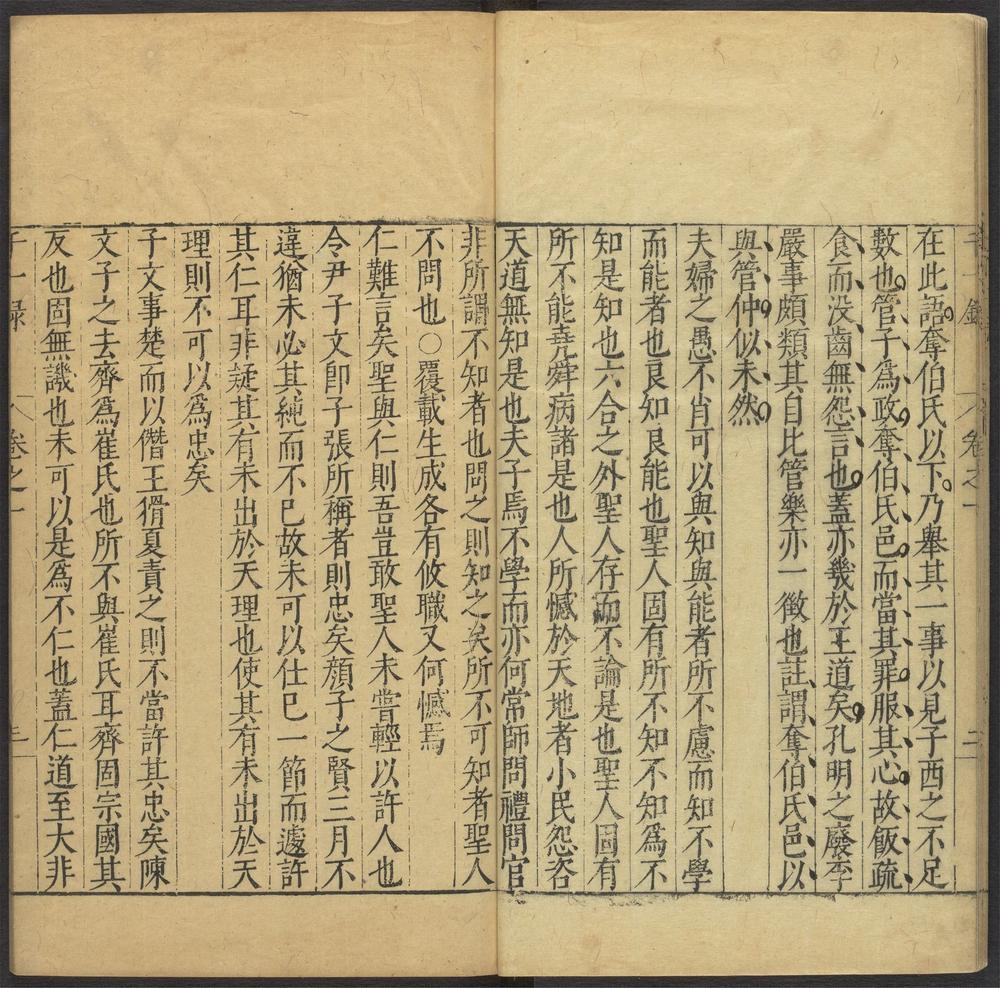 千一錄 卷之一 二
在此語奪伯氏以下乃舉其一事以見子西之不足
數也管子為政奪伯氏邑而當其罪服其心故飯疏
食而没齒無怨言也蓋亦幾於王道矣孔明之廢李
嚴事頗類其自比管樂亦一徵也註謂奪伯氏邑以
與管仲似未然
夫婦之愚不肖可以與知與能者所不慮而知不學
而能者也良知良能也聖人固有所不知不知爲不
知是知也六合之外聖人存而不論是也聖人固有
所不能堯舜病諸是也人所憾於天地者小民怨咨
天道無知是也夫子焉不學而亦何常師問禮問官
非所謂不知者也問之則知之矣所不可知者聖人
不問也○覆載生成各有攸職又何憾焉
仁難言矣聖與仁則吾豈敢聖人未嘗輕以許人也
令尹子文卽子張所稱者則忠矣顔子之賢三月不
違猶未必其純而不已故未可以仕已一節而遽許
其仁耳非疑其有未出於天理也使其有未出於天
理則不可以爲忠矣
子文事楚而以僭王猾夏責之則不當許其忠矣陳
文子之去齊爲崔氏也所不與崔氏耳齊固宗國其
反也固無譏也未可以是爲不仁也蓋仁道至大非
千一錄 卷之一 三